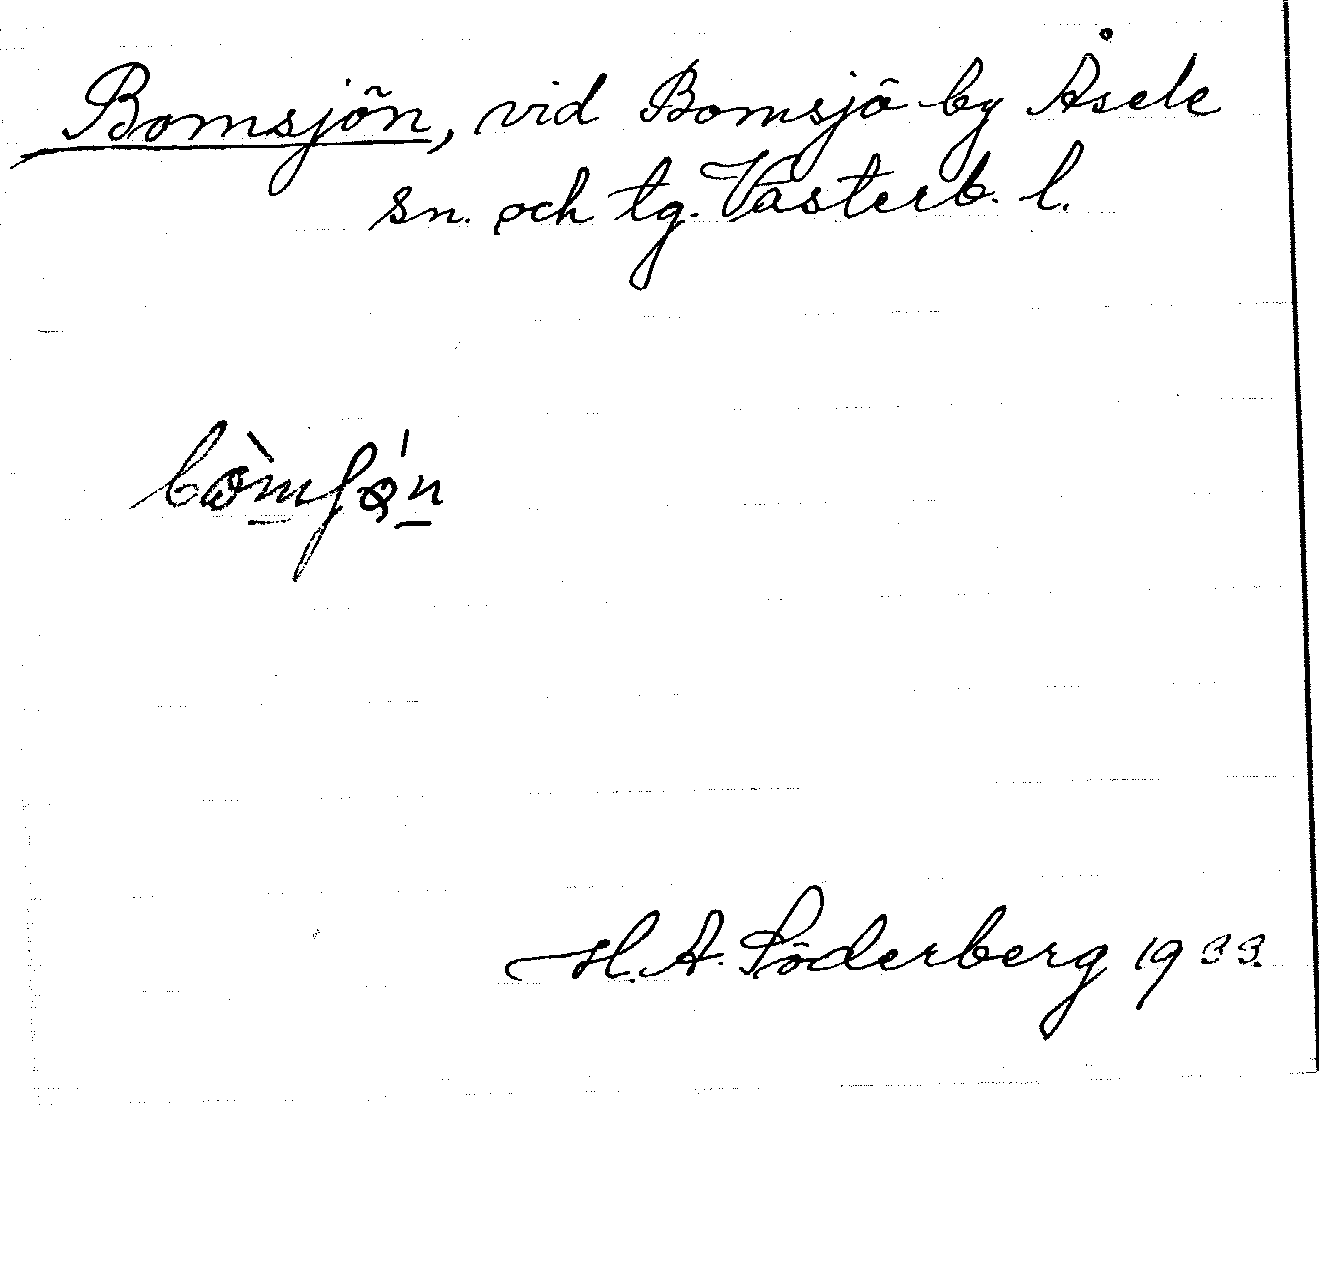 Bomsjön, vid Bomsjö by Åsele
sn. och tg. Västerb. l.
H. A. Söderberg 1933.